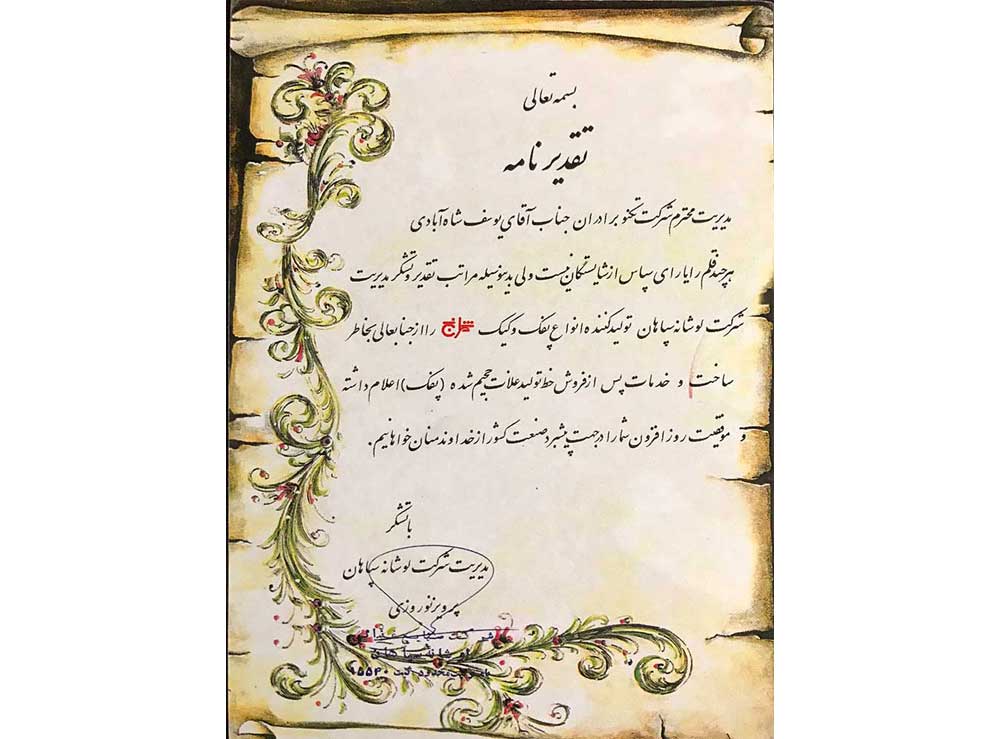 بسمه تعالی
تقدیر نامه
مدیریت محترم شرکت تکنو برادران جناب آقای یوسف شاه آبادی
هر چند قلم را یارای سپاس از شایستگان نیست ولی بدینوسیله مراتب تقدیر و تشکر مدیریت
شرکت نوشانه سپاهان تولید کننده انواع پفک و کیک را از جنابعالی بخاطر
ساخت و خدمات پس از فروش خط تولید غلات حجیم شده (پفک) اعلام داشته
و موفقیت روز افزون شما را در جهت پیشبرد صنعت کشور از خداوند منان خواهانیم.
با تشکر
مدیریت شرکت نوشانه سپاهان
پرویز نوروزی
شرکت صنایع غذائی
نوشانه سپاهان